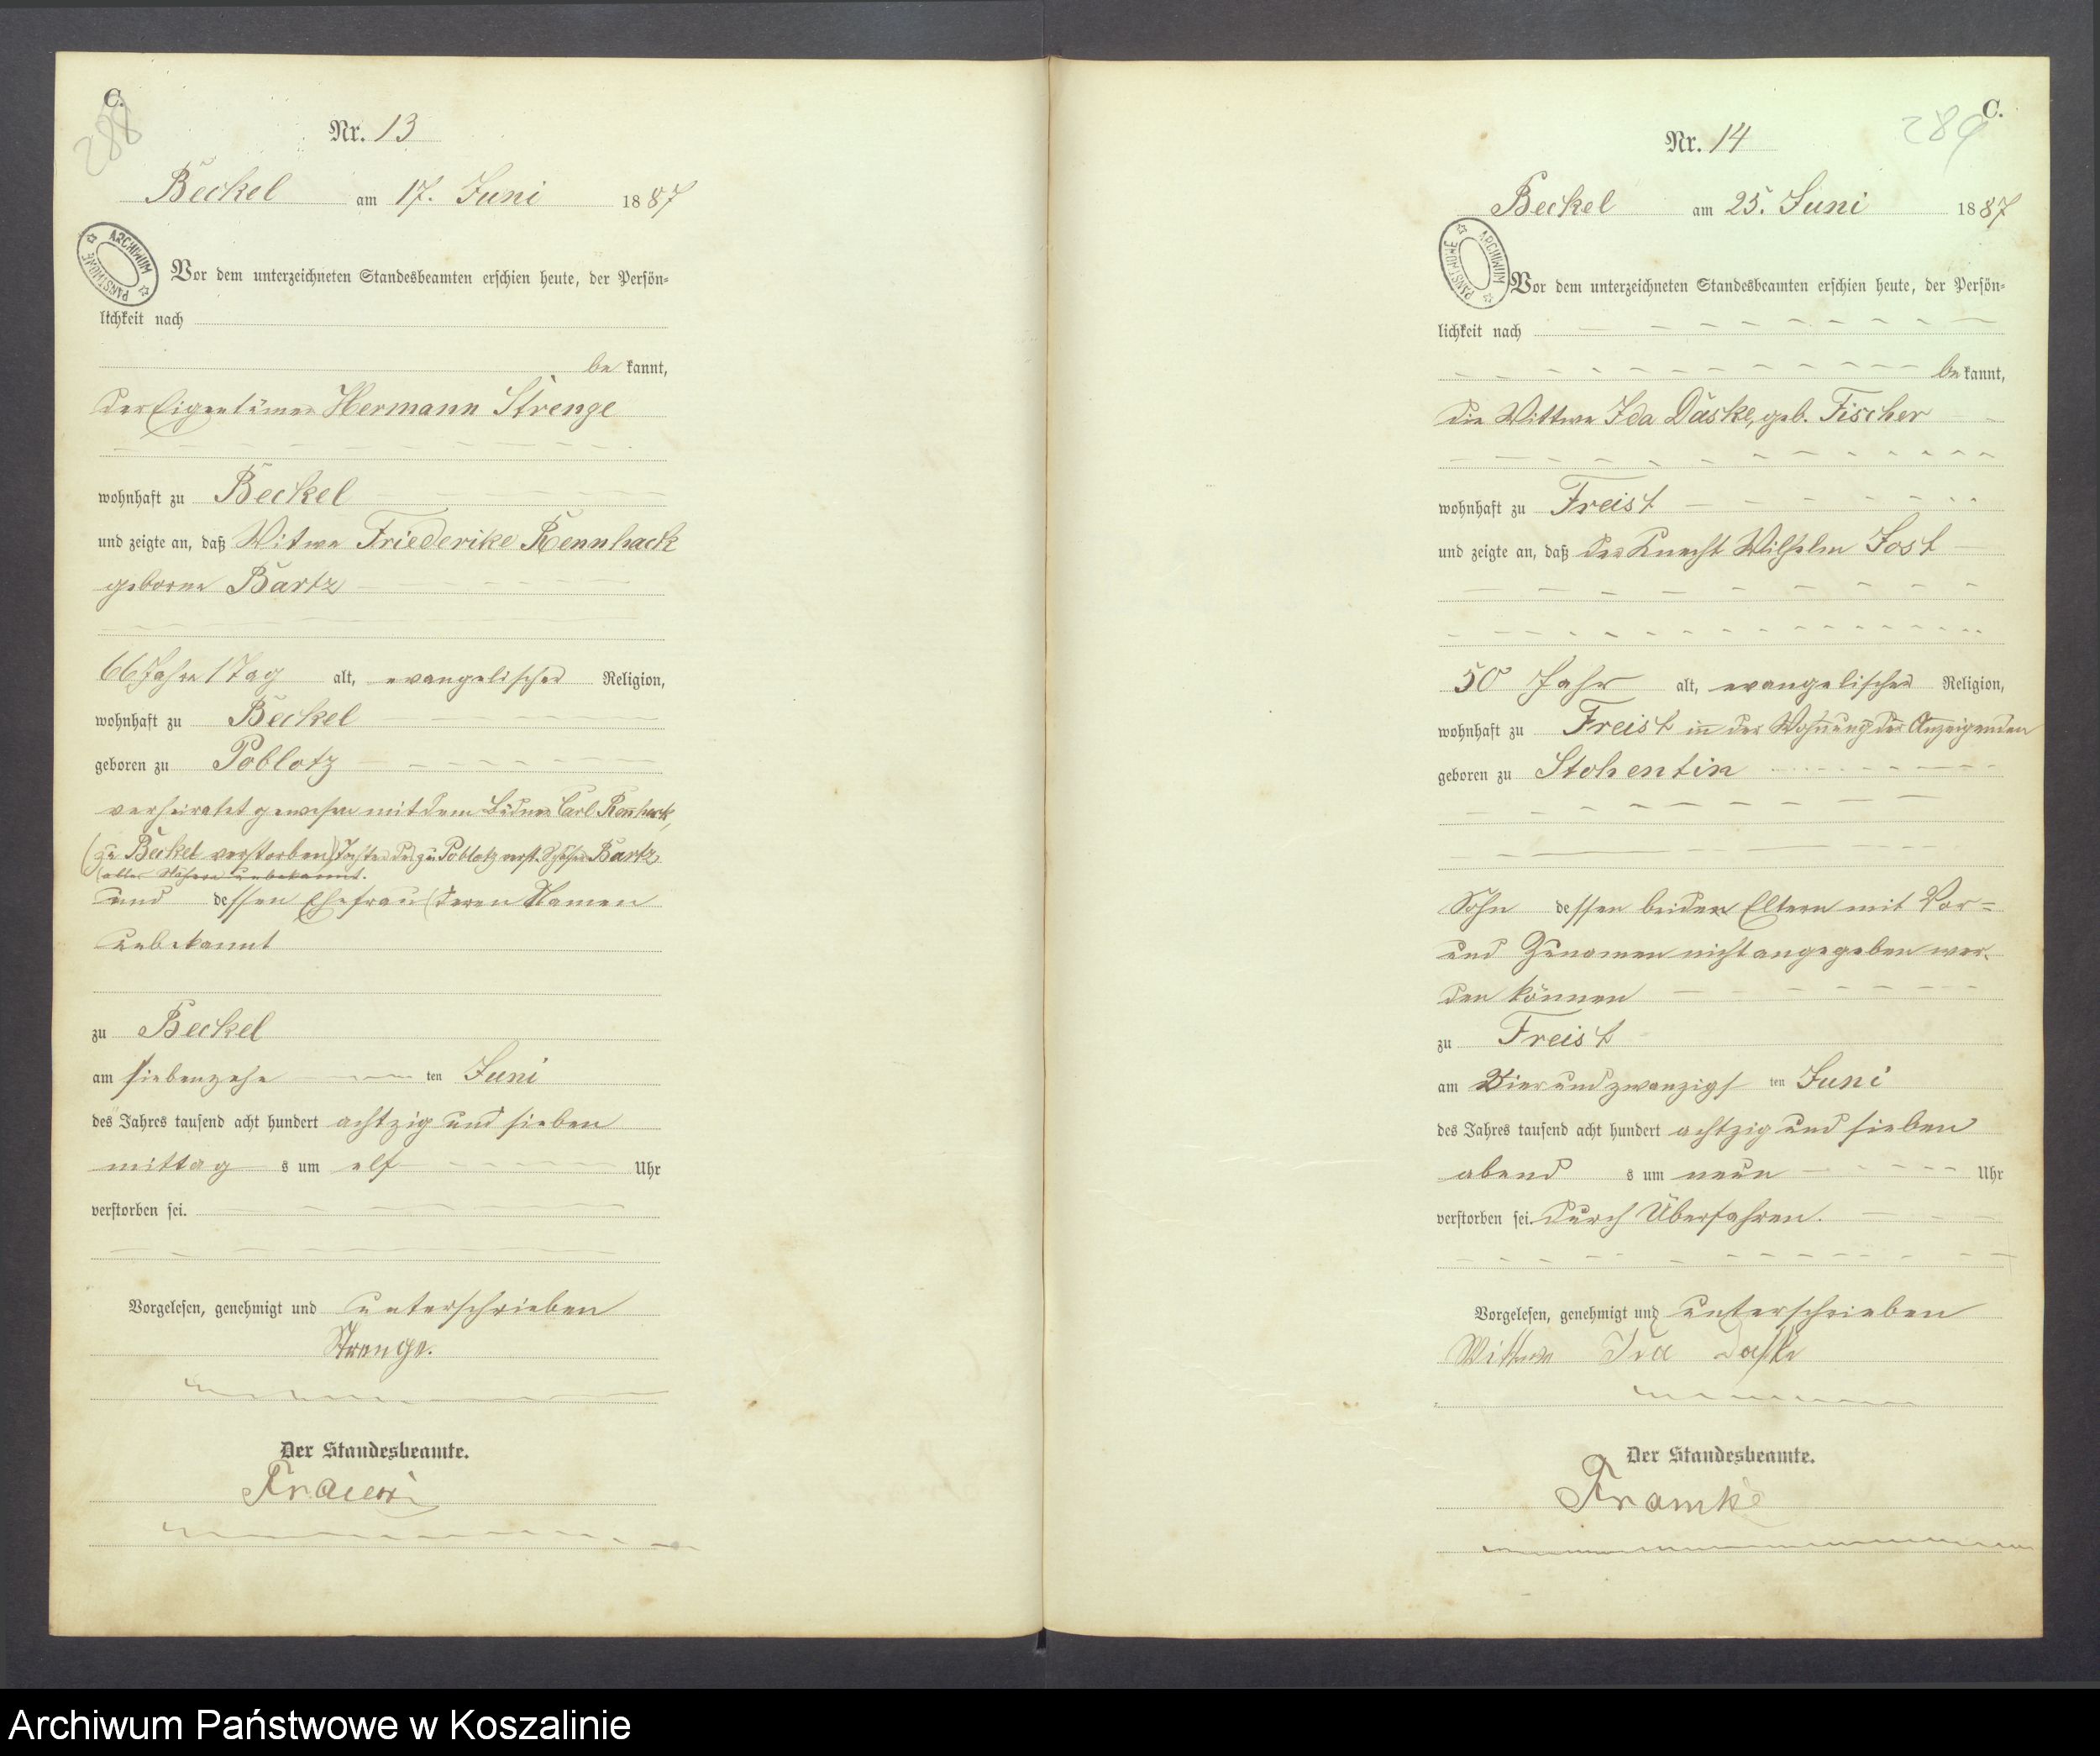 C.
288
Nr. 13
Beckel am 17. Juni 1887
ARCHIWUM PAŃSTWOWE
Vor dem unterzeichneten Standesbeamten erschien heute, der Persön-
lichkeit nach
be kannt,
der Eigentümer Hermann Strenge
wohnhaft zu Beckel
und zeigte an, daß Witwe Friederike Rennhack
geborne Bartz
66 Jahre 1 Tag alt, evangelischer Religion,
wohnhaft zu Beckel
geboren zu Poblotz
verheiratet gewesen mit dem Büdner Carl Rennhack,
(zu Beckel verstorben) Tochter des zu Poblotz verst. Schäfer Bartz
und dessen Ehefrau (deren Namen
unbekannt
zu Beckel
am siebenzehn ten Juni
des Jahres tausend acht hundert achtzig und sieben
mittag s um elf Uhr
verstorben sei.
Vorgelesen, genehmigt und unterschrieben
Strenge.
Der Standesbeamte.
C.
289
Nr. 14
Beckel am 25. Juni 1887
ARCHIWUM PAŃSTWOWE
Vor dem unterzeichneten Standesbeamten erschien heute, der Persön-
lichkeit nach
be kannt,
die Wittwe Ida Däske, geb. Fischer
wohnhaft zu Freist
und zeigte an, daß der Knecht Wilhelm Jost
50 Jahr alt, evangelischer Religion,
wohnhaft zu Freist in der Wohnung der Anzeigenden
geboren zu Stohentin
Sohn dessen beiden Eltern mit Vor-
und Zunamen nicht angegeben wer-
den können
zu Freist
am Vierundzwanzigs ten Juni
des Jahres tausend acht hundert achtzig und sieben
abend s um neun Uhr
verstorben sei. durch Überfahren.
Vorgelesen, genehmigt und unterschrieben
Wittwe Ida Daske
Der Standesbeamte.
Framke
Archiwum Państwowe w Koszalinie